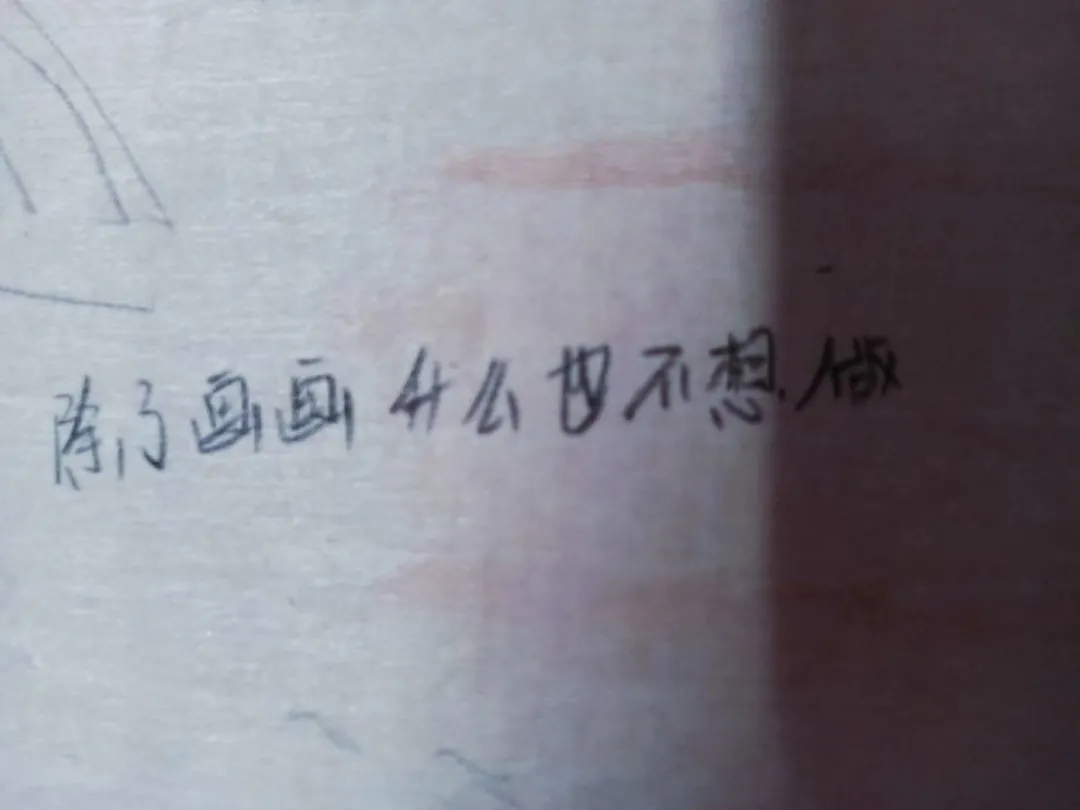 除了画画什么也不想做